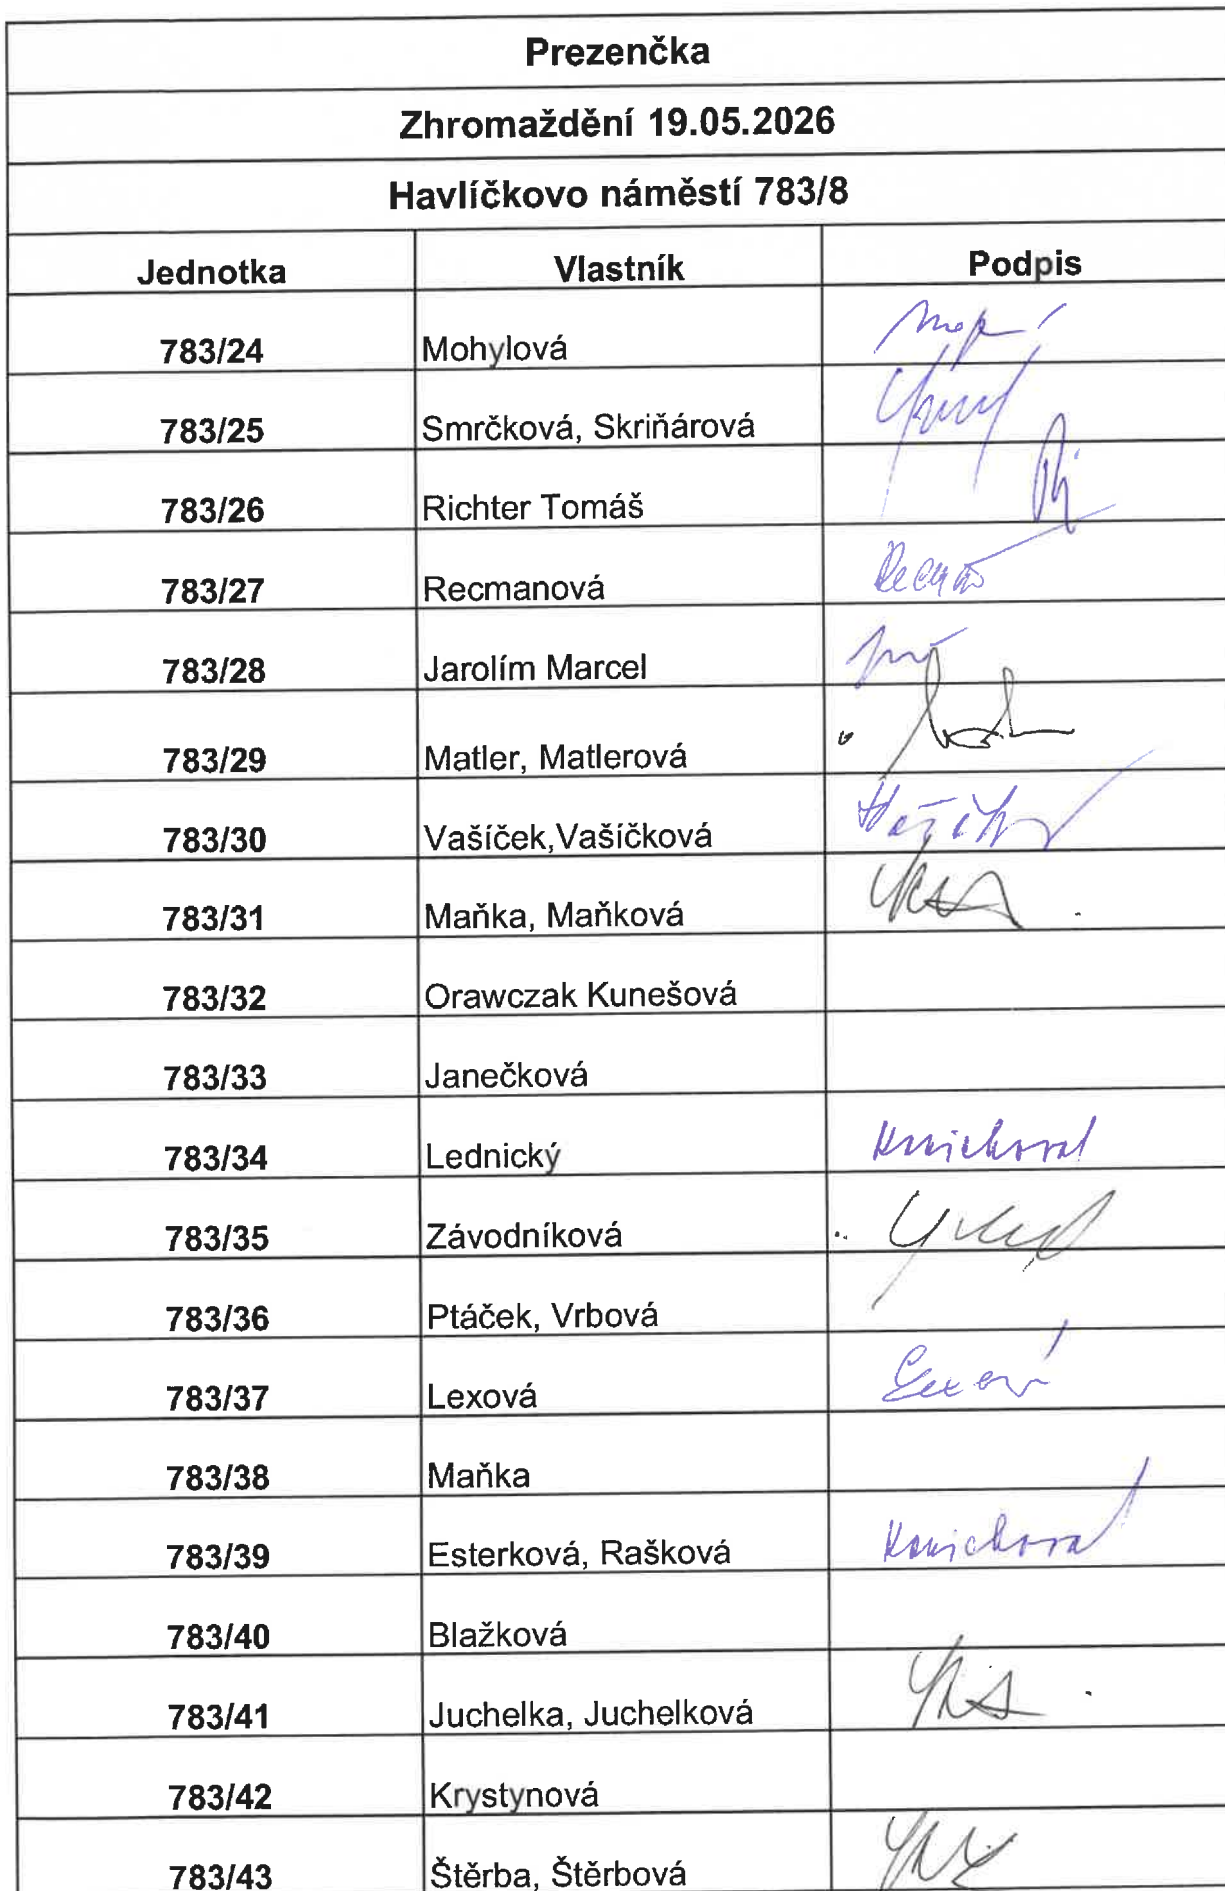 Prezenčka
Zhromaždění 19.05.2026
Havlíčkovo náměstí 783/8
Jednotka Vlastník Podpis
783/24 Mohylová
783/25 Smrčková, Skriňárová
783/26 Richter Tomáš
783/27 Recmanová
783/28 Jarolím Marcel
783/29 Matler, Matlerová
783/30 Vašíček,Vašíčková
783/31 Maňka, Maňková
783/32 Orawczak Kunešová
783/33 Janečková
783/34 Lednický
783/35 Závodníková
783/36 Ptáček, Vrbová
783/37 Lexová Lexová
783/38 Maňka
783/39 Esterková, Rašková
783/40 Blažková
783/41 Juchelka, Juchelková
783/42 Krystynová
783/43 Štěrba, Štěrbová